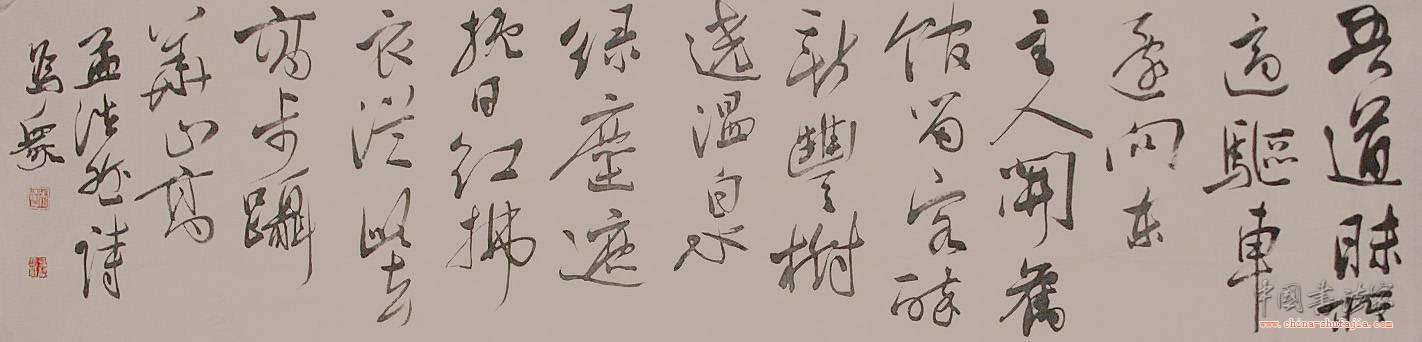 吾道昧所
適驅車
還向东
主人開舊
館留客醉
新豐樹
遶温泉
绿塵遮
晚日红拂
衣從此去
高步躡
華山高
孟浩然詩
中國書法家
www.china-shufajia.com